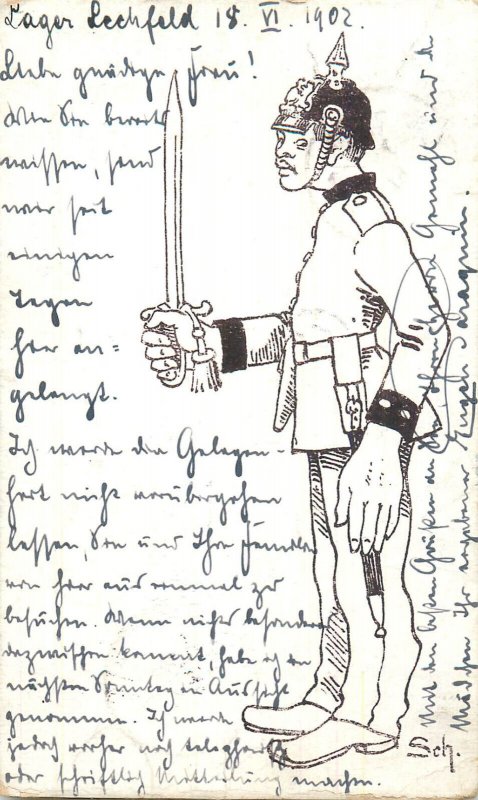 Lager Lechfeld 18. VI. 1902.
Liebe gnädige Frau!
Wie Sie bereits
wissen, sind
wir seit
einigen
Tagen
hier an=
gelangt.
Ich werde die Gelegen-
heit nicht vorübergehen
lassen, Sie und Ihre Familie
von hier aus einmal zu
besuchen. Wenn nichts besonderes
dazwischen kommt, habe ich den
nächsten Sonntag in Aussicht
genommen. Ich werde
jedoch vorher noch telephonisch
oder schriftlich Mitteilung machen.
Mit den besten Grüßen an den Herrn Gemahl und die
Mädchen Ihr ergebener Eugen
Sch.